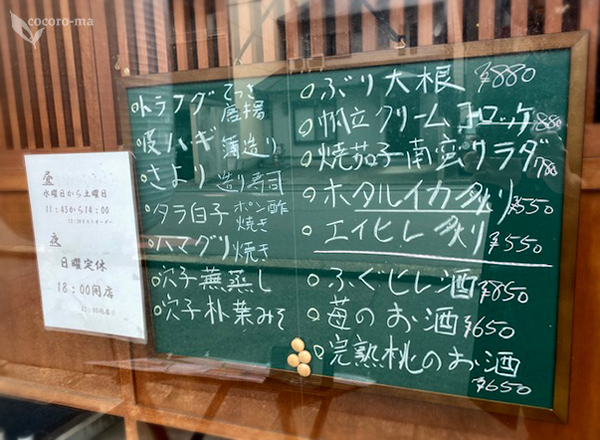 cocoro-ma
トラフグ てっさ 唐揚
皮ハギ 薄造り
さより 造り 寿司
タラ白子 ポン酢 焼き
ハマグリ 焼き
穴子蕪蒸し
穴子朴葉みそ
ぶり大根 ¥880
帆立クリームコロッケ 880
焼茄子南蛮サラダ 780
ホタルイカ炙り ¥550
エイヒレ炙り ¥550
ふぐひれ酒 ¥850
苺のお酒 ¥650
完熟桃のお酒 ¥650
昼
水曜日から土曜日
11:45から14:00
夜
日曜定休
18:00開店